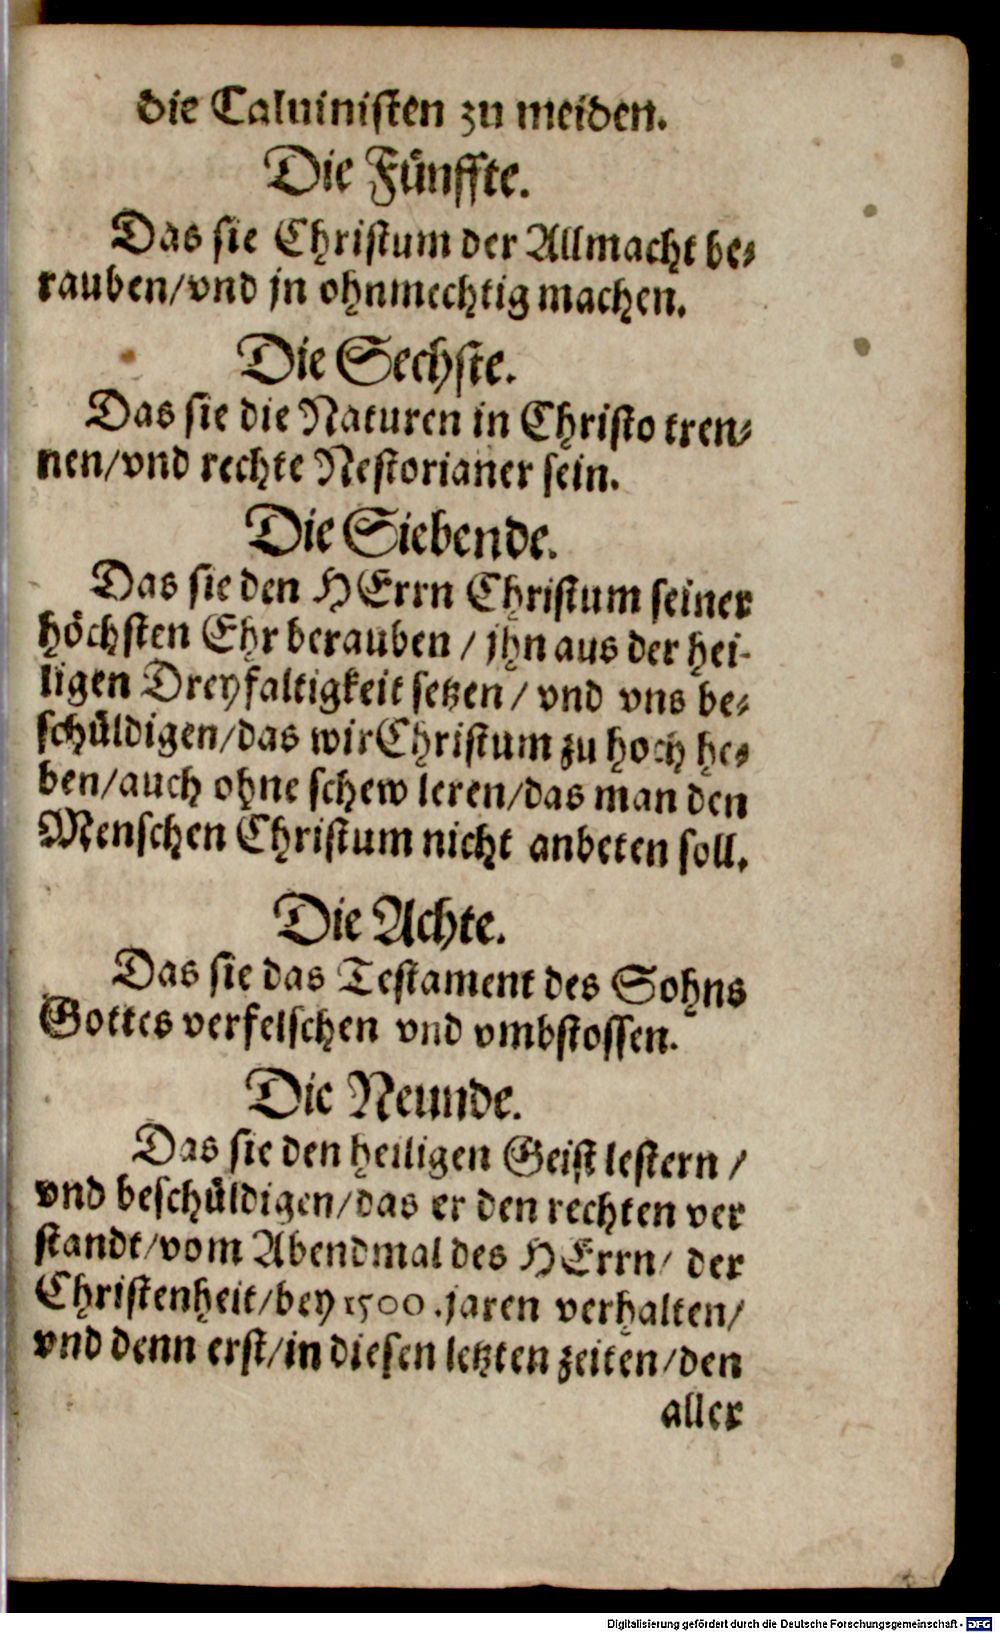 die Caluinisten zu meiden.
Die Fünffte.
Das sie Christum der Allmacht be-
rauben/vnd jn ohnmechtig machen.
Die Sechste.
Das sie die Naturen in Christo tren-
nen/vnd rechte Nestorianer sein.
Die Siebende.
Das sie den HErrn Christum seiner
höchsten Ehr berauben / jhn aus der hei-
ligen Dreyfaltigkeit setzen / vnd vns be-
schüldigen/das wir Christum zu hoch he-
ben/auch ohne schew leren/das man den
Menschen Christum nicht anbeten soll.
Die Achte.
Das sie das Testament des Sohns
Gottes verfelschen vnd vmbstossen.
Die Neunde.
Das sie den heiligen Geist lestern /
vnd beschüldigen/das er den rechten ver
standt/vom Abendmal des HErrn/ der
Christenheit/bey 1500.jaren verhalten/
vnd denn erst/in diesen letzten zeiten/den
aller
Digitalisierung gefördert durch die Deutsche Forschungsgemeinschaft - DFG